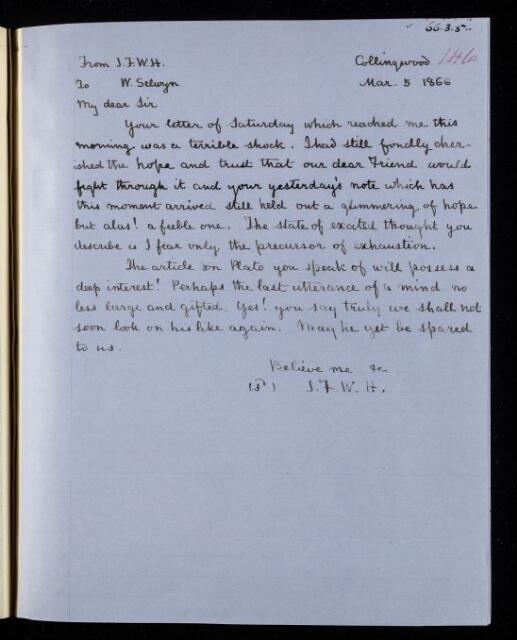 66.3.5..
From J.F.W.H.
Collingwood 146
To W. Selwyn
Mar. 5 1866
My dear Sir
Your letter of Saturday which reached me this
morning was a terrible shock. I had still fondly cher-
ished the hope and trust that our dear Friend would
fight through it and your yesterday's note which has
this moment arrived still held out a glimmering of hope
but alas! a feeble one. The state of excited thought you
describe is I fear only the precursor of exhaustion.
The article on Plato you speak of will possess a
deep interest! Perhaps the last utterance of a mind no
less large and gifted. Yes! you say truly we shall not
soon look on his like again. May he yet be spared
to us.
Believe me &c
(S) J.F.W.H.